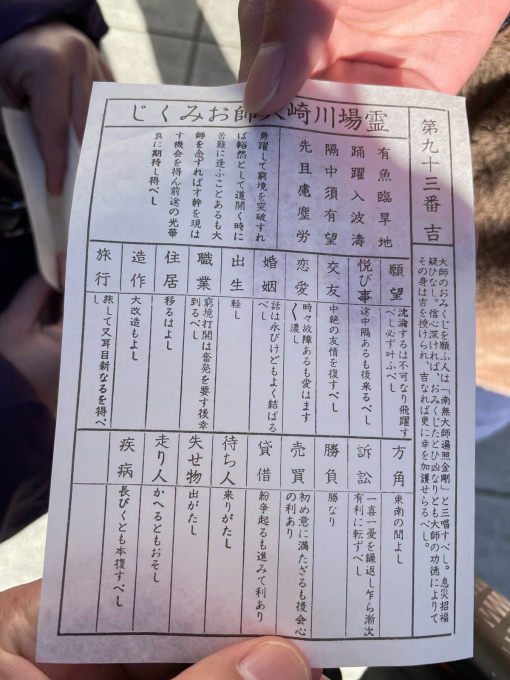 霊場川崎大師おみくじ
第九十三番 吉
大師のおみくじを願ふ人は「南無大師遍照金剛」と三唱すべし。息災招福
疑ひなし。信心深ければ、おみくじたとひ凶なりとも大師の功徳によりて
その身は吉を授けられ、吉なれば更に幸を加護せらるべし。
有魚臨旱地
踊躍入波濤
隔中須有望
先且慮塵労
勇躍して窮境を突破すれ
ば豁然として道開く時に
苦難に逢ふことあるも大
師を念ずれば才幹を現は
す機会を得ん前途の光華
真に期待し得べし
願望
沈淪するは不可なり飛躍す
べし必ず叶ふべし
悦び事
途中隔あるも後来るべし
交友
中絶の友情を復すべし
恋愛
時々故障あるも愛はます
く濃し
婚姻
話は永びけどもよく結ばる
べし
出生
軽し
職業
窮境打開は奮発を要す後幸
到るべし
住居
移るはよし
造作
大改造もよし
旅行
旅して又耳目新なるを得べ
し
方角
東南の間よし
訴訟
一喜一憂を繰返し乍ら漸次
有利に転ずべし
勝負
勝なり
売買
初め意に満たざるも後会心
の利あり
貸借
紛争起るも進みて利あり
待ち人
来りがたし
失せ物
出がたし
走り人
かへるともおそし
疾病
長びくとも本復すべし